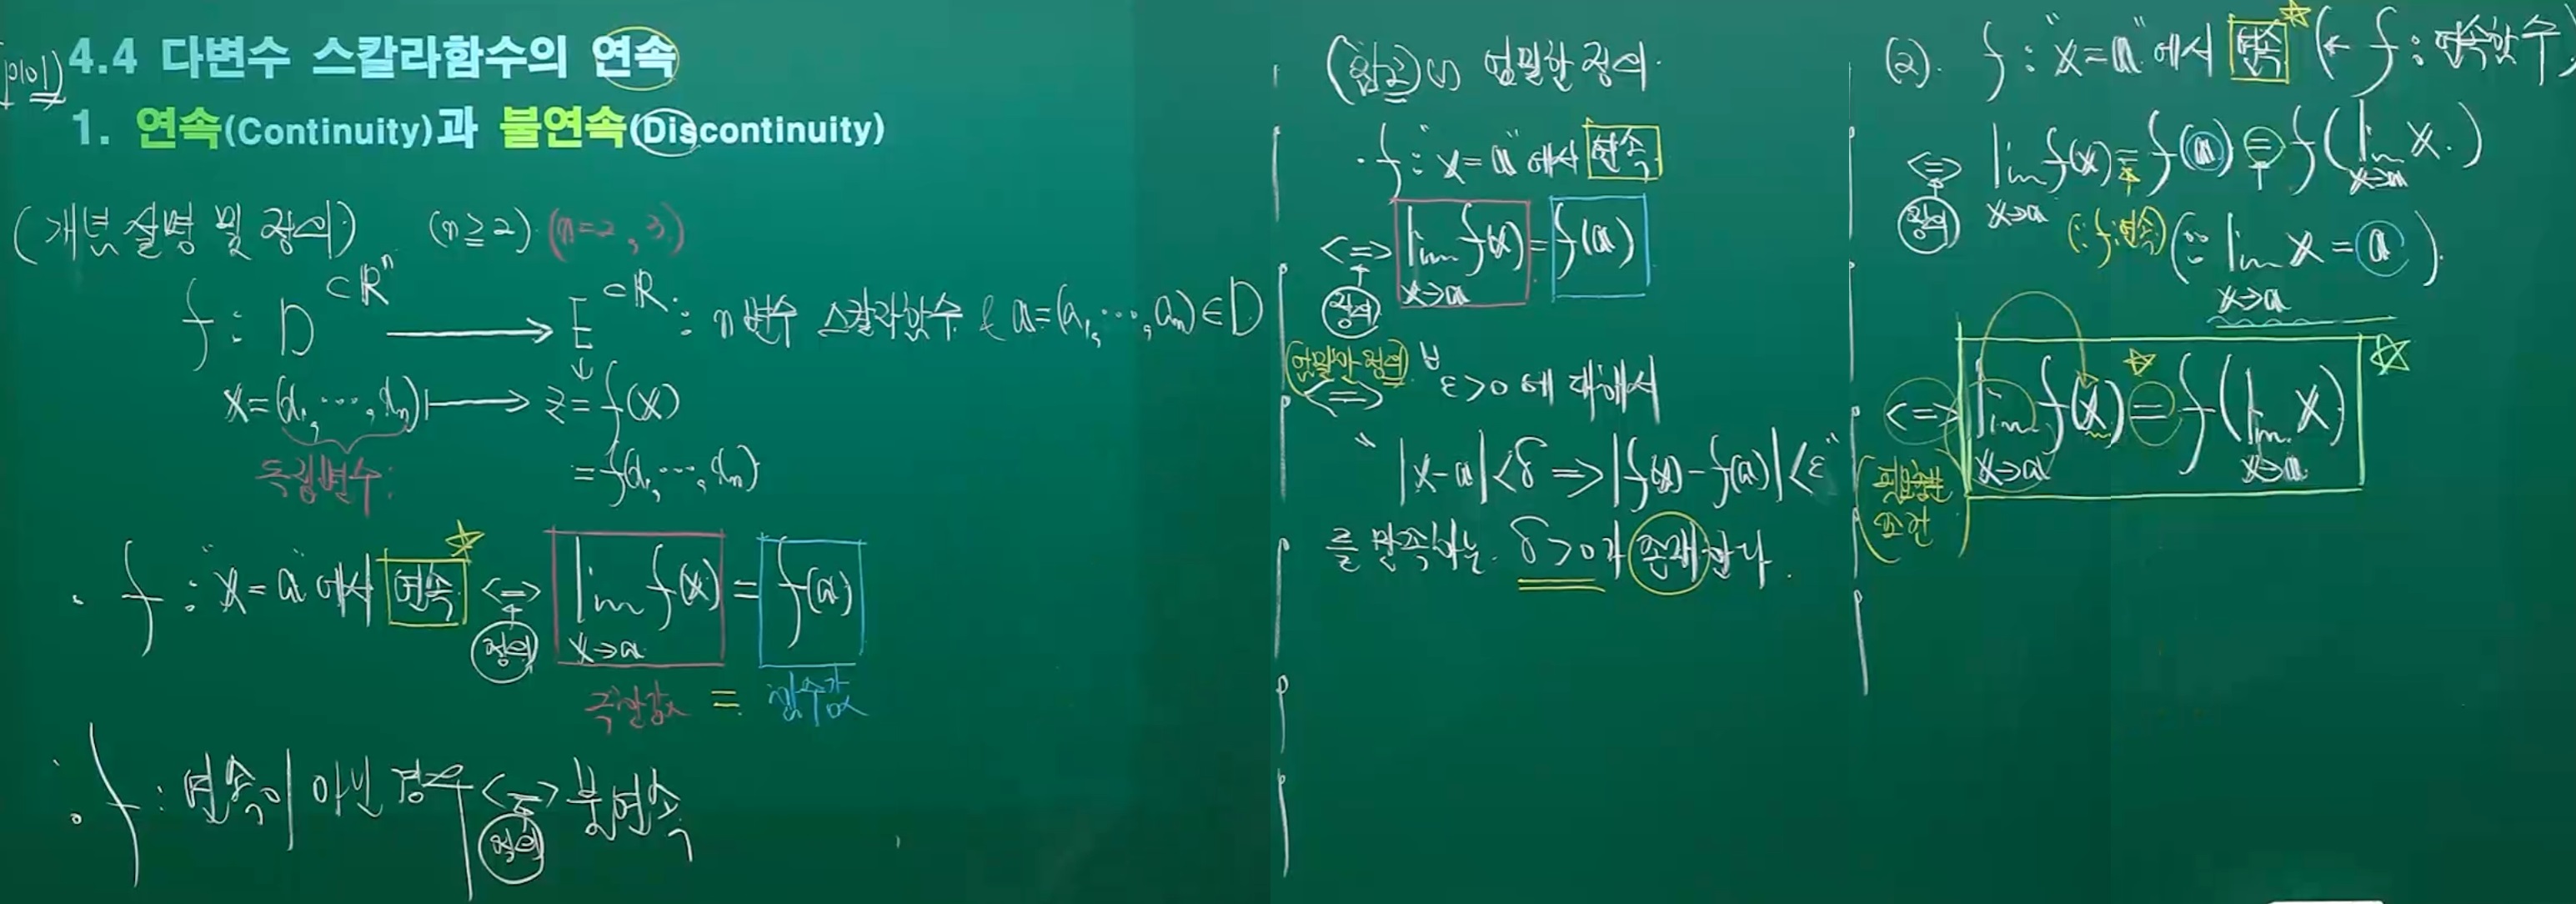 4.4 다변수 스칼라함수의 연속
1. 연속(Continuity)과 불연속(Discontinuity)
(개념 설명 및 정의) (n≥2) (n=2, 3)
f : D ⊂ℝⁿ ⟶ E ⊂ℝ : n변수 스칼라함수 & a=(a₁, ⋯, aₙ)∈D
x=(x₁, ⋯, xₙ) ⟼ z = f(x)
독립변수 = f(x₁, ⋯, xₙ)
· f : "x=a"에서 연속 <=> lim f(x) = f(a)
정의 x→a
극한값 = 함수값
f : 연속이 아닌 경우 <=> 불연속
정의
(참고) (1) 엄밀한 정의
· f : "x=a"에서 연속
<=> lim f(x) = f(a)
정의 x→a
(엄밀한 정의) <=> ∀ε>0 에 대해서
"|x-a|<δ => |f(x)-f(a)|<ε"
를 만족하는 δ>0가 존재한다.
(2). f : "x=a"에서 연속 (← f : 연속함수)
<=> lim f(x) = f(a) = f(lim x.)
정의 x→a x→a
(∵ f:연속) (∵ lim x = a).
x→a
<=> lim f(x) = f(lim x)
x→a x→a
(필요충분조건)